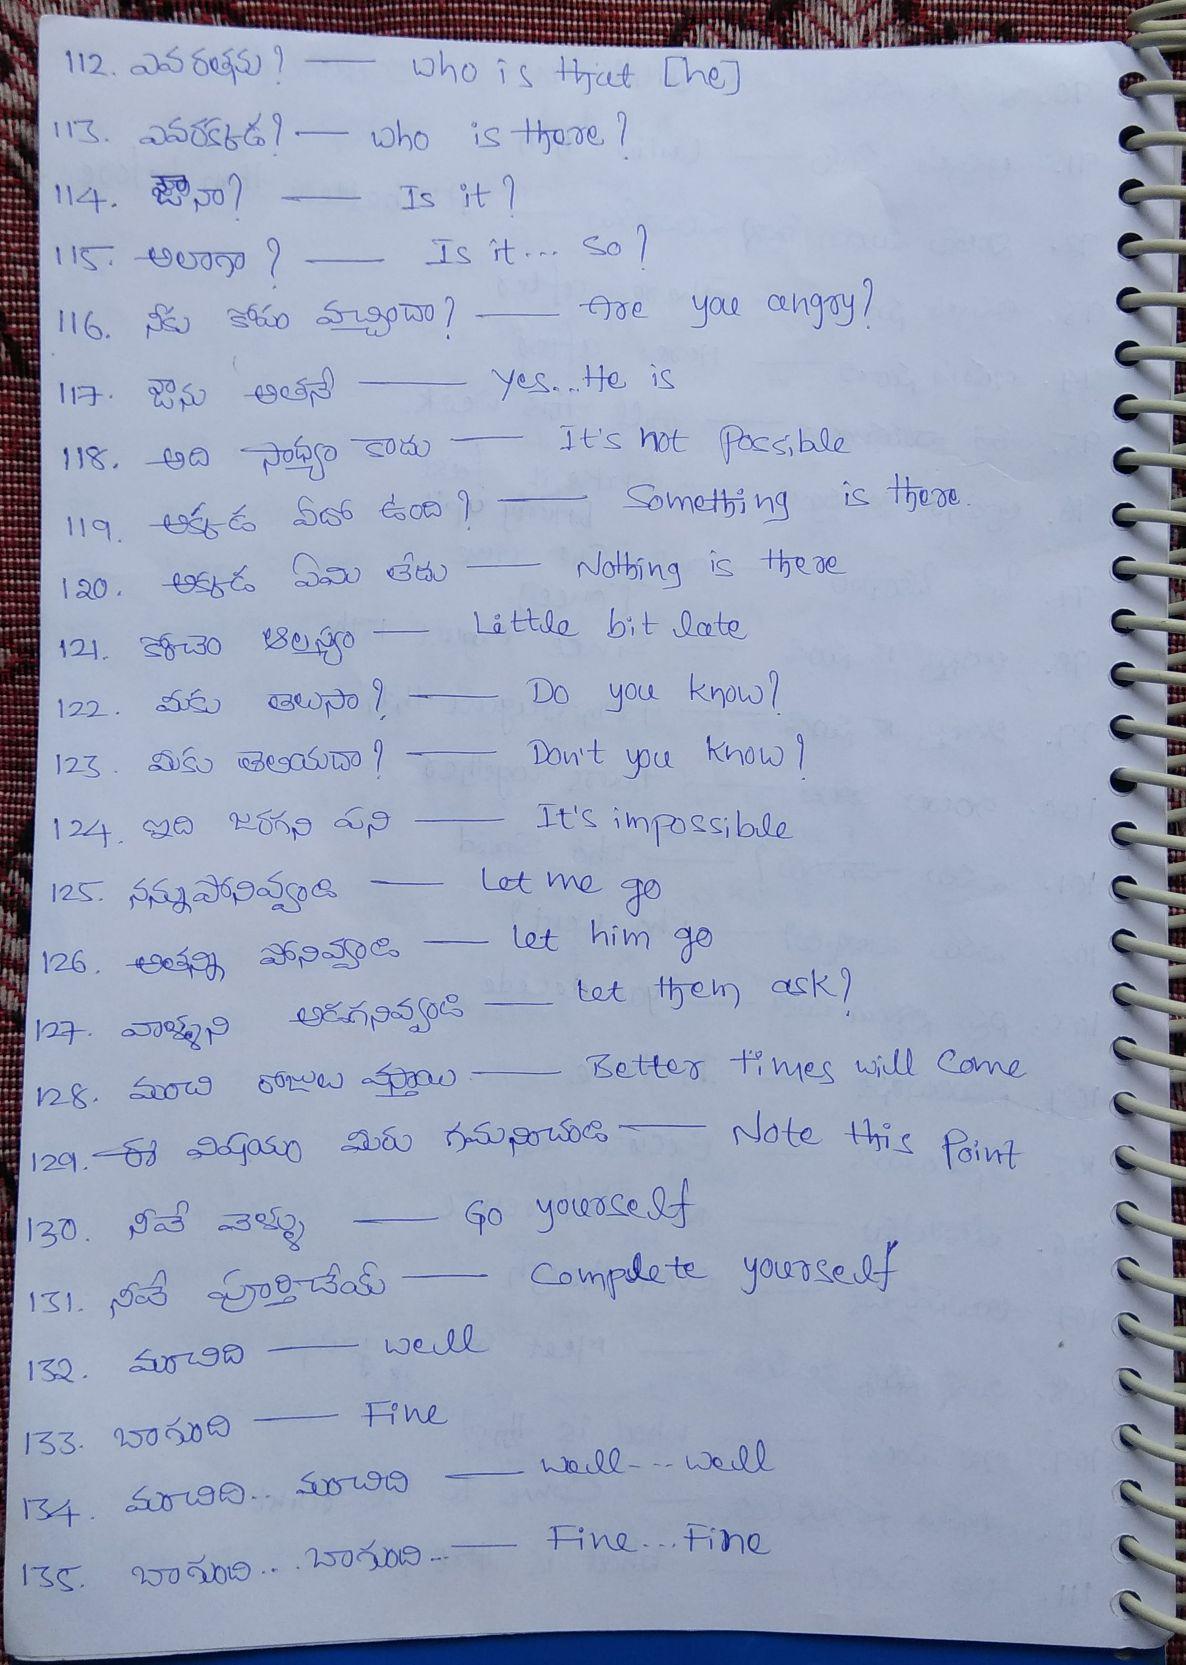 112. ఎవరతను? — who is that [he]
113. ఎవరక్కడ? — who is there?
114. ఔనా? — Is it?
115. అలాగా? — Is it... so?
116. నీకు కోపం వచ్చిందా? — Are you angry?
117. ఔను అతనే — Yes...He is
118. అది సాధ్యం కాదు — It's not possible
119. అక్కడ ఏదో ఉంది? — Something is there.
120. అక్కడ ఏమి లేదు — Nothing is there
121. కొంచెం ఆలస్యం — Little bit late
122. మీకు తెలుసా? — Do you know?
123. మీకు తెలియదా? — Don't you know?
124. ఇది జరగని పని — It's impossible
125. నన్నుపోనివ్వండి — Let me go
126. అతన్ని పోనివ్వండి — let him go
127. వాళ్ళని అడగనివ్వండి — let them ask?
128. మంచి రోజులు వస్తాయి — Better times will come
129. ఈ విషయం మీరు గమనించండి — Note this point
130. నీవే వెళ్ళు — Go yourself
131. నీవే పూర్తిచేయ్ — Complete yourself
132. మంచిది — well
133. బాగుంది — Fine
134. మంచిది.. మంచిది — well---well
135. బాగుంది... బాగుంది... — Fine...Fine